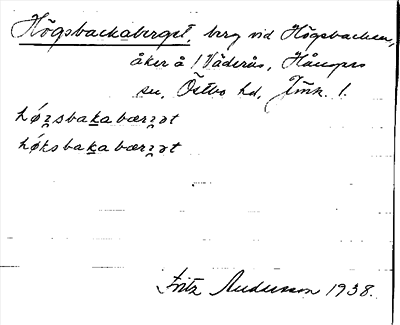 Högsbackaberget, berg vid Högsbacken,
åker å 1 Väderås, Hångers
sn, Östbo hd, Jönk. l.
høʒsbakabærʒət
høksbakabærʒət
Fritz Andersson 1938.